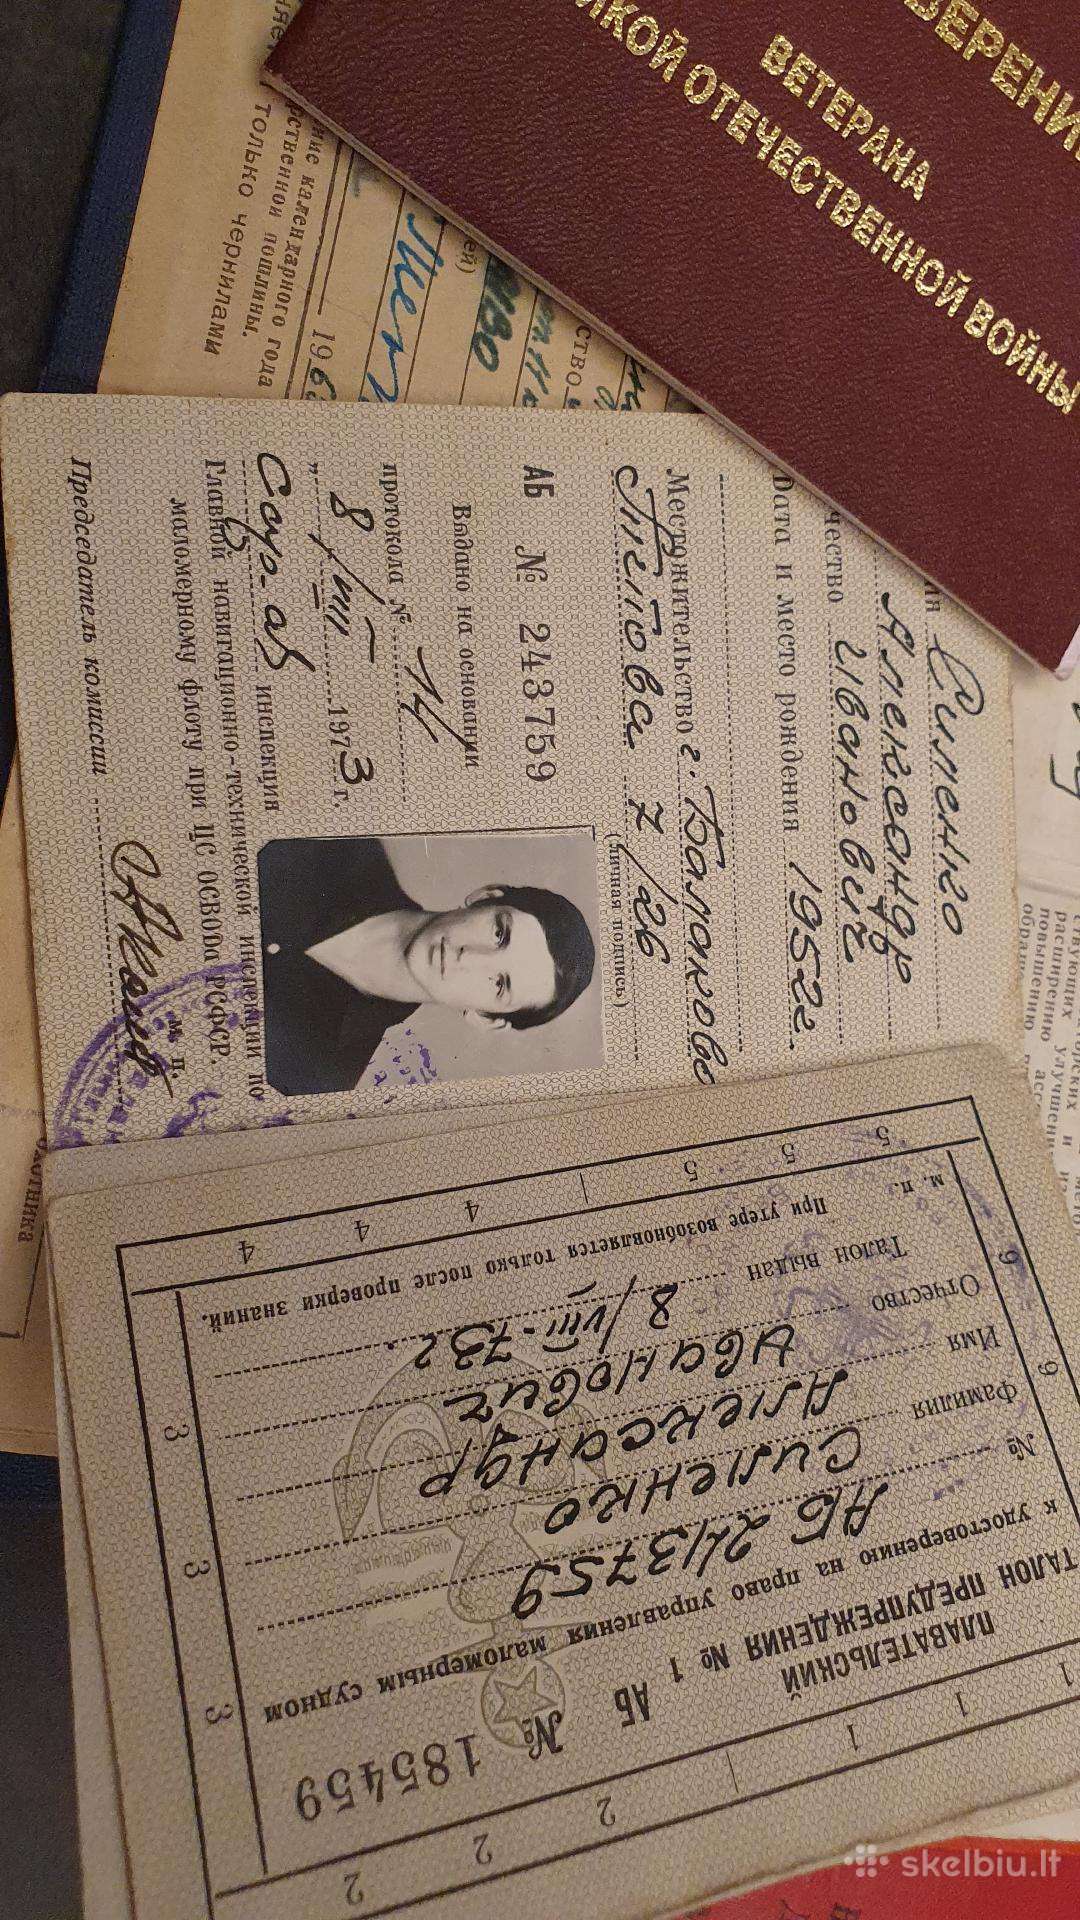 ВЕТЕРАНА
ОТЕЧЕСТВЕННОЙ ВОЙНЫ
календарного года
пошлины.
только чернилами
Силенко
Александр
Иванович
Дата и место рождения 1952г.
Местожительство г. Балаково
Титова 7/26
(личная подпись)
АБ № 243759
Выдано на основании
протокола № 14
„ 8/VIII 1973 г.
Сар-ов инспекция
Главной навигационно-технической инспекции по
маломерному флоту при ЦС ОСВОДа РСФСР.
Председатель комиссии
м. п.
№ 185459
АБ
ПЛАВАТЕЛЬСКИЙ
ТАЛОН ПРЕДУПРЕЖДЕНИЯ № 1
к удостоверению на право управления маломерным судном
№ АБ 243759
Фамилия Силенко
Имя Александр
Отчество Иванович
Талон выдан 8/VIII-73г.
При утере возобновляется только после проверки знаний.
м. п.
1 1 1
2 2 2
3 3 3
4 4 4
5 5 5
расширению улучшени
повышению
skelbiu.lt